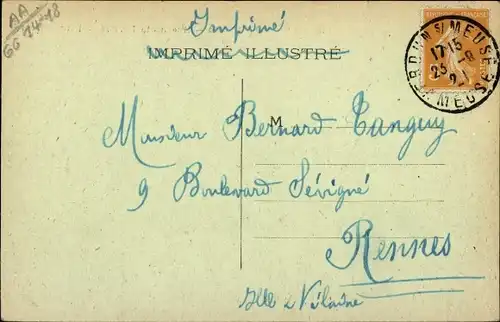 AA
GG 14-18
Imprimé
IMPRIMÉ ILLUSTRÉ
VERDUN S/ MEUSE
17 15
23 -8
MEUSE
M
Monsieur Bernard Tanguy
9 Boulevard Sévigné
Rennes
Ille & Vilaine